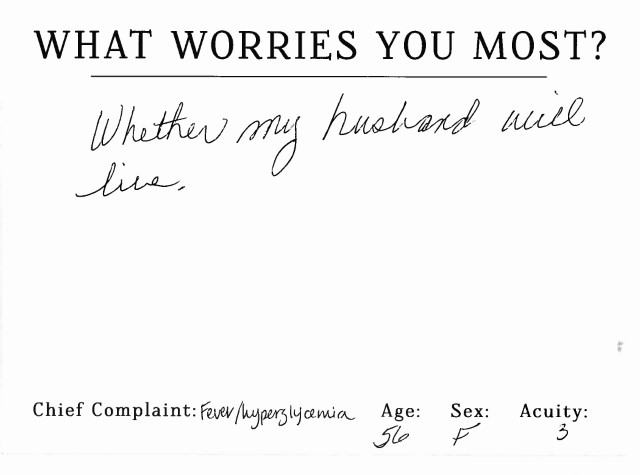 WHAT WORRIES YOU MOST?
Whether my husband will
live.
Chief Complaint: Fever/hyperglycemia Age: Sex: Acuity:
56 F 3